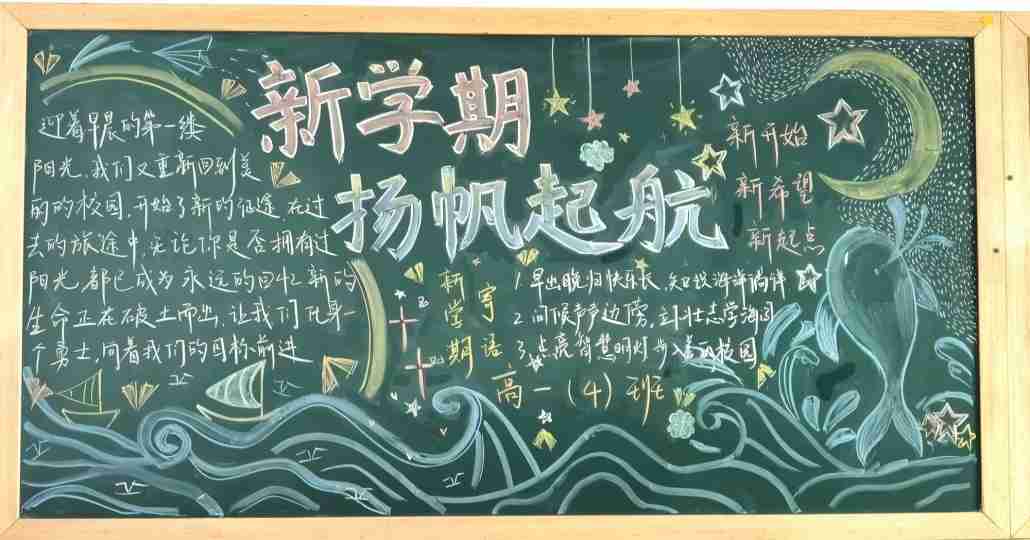 新学期
扬帆起航
迎着早晨的第一缕
阳光,我们又重新回到美
丽的校园,开始了新的征途,在过
去的旅途中,无论你是否拥有过
阳光,都已成为永远的回忆,新的
生命正在破土而出,让我们化身一
个勇士,向着我们的目标前进
新开始
新希望
新起点
新学期
寄语
1.早出晚归快乐长,知识海洋
2.问候声声边傍,立壮志学海
3.点亮智慧明灯,步入校园
高一(4)班